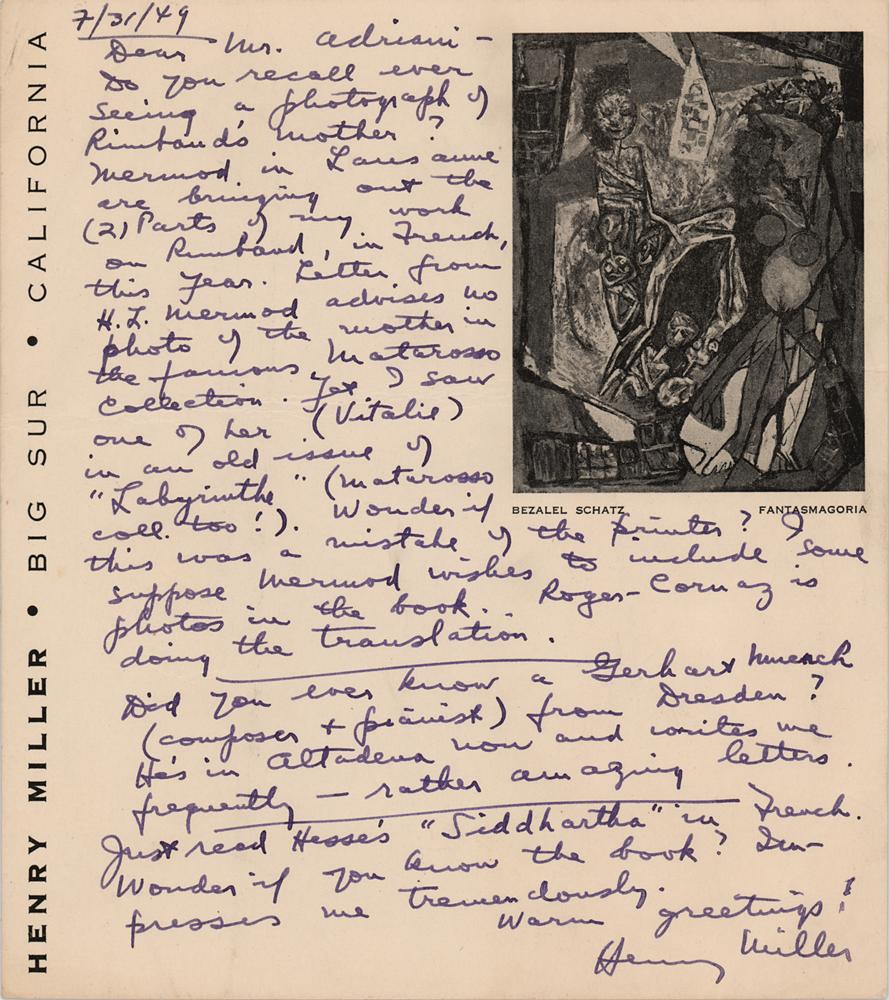 7/31/49
Dear Mr. Adriani —
Do you recall ever
seeing a photograph of
Rimbaud's mother?
Mermod in Lausanne
are bringing out the
(2) Parts of my work
on Rimbaud, in French,
this year. Letter from
H.L. Mermod advises no
photo of the mother in
the famous Matarosso
Collection. Yet I saw
one of her (Vitalie)
in an old issue of
"Labyrinthe" (Matarosso
coll. too!). Wonder if
this was a mistake of the printer? I
suppose Mermod wishes to include some
photos in the book. Roger-Cornaz is
doing the translation.
Did you ever know a Gerhart Muench
(composer + pianist) from Dresden?
He's in Altadena now and writes me
frequently — rather amazing letters.
Just read Hesse's "Siddhartha" in French.
Wonder if you know the book? Im-
presses me tremendously.
Warm greetings!
Henry Miller
BEZALEL SCHATZ FANTASMAGORIA
HENRY MILLER • BIG SUR • CALIFORNIA